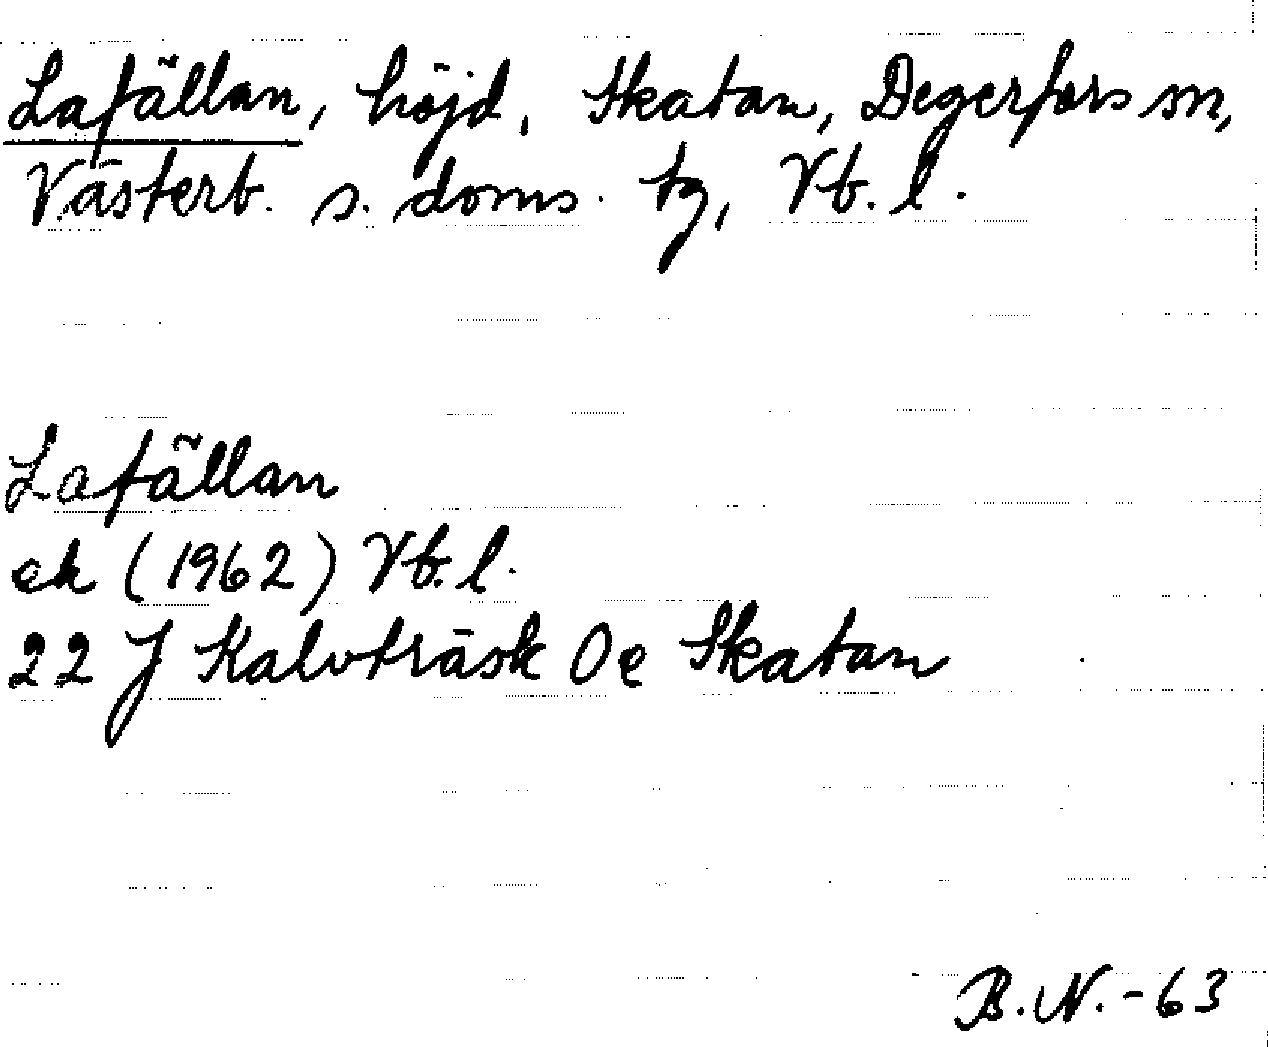 Lafällan, höjd, Skatan, Degerfors sn,
Västerb. s. doms. tg, Vb. l.
Lafällan
ek (1962) Vb. l.
22 J Kalvträsk 0e Skatan
B.N.-63